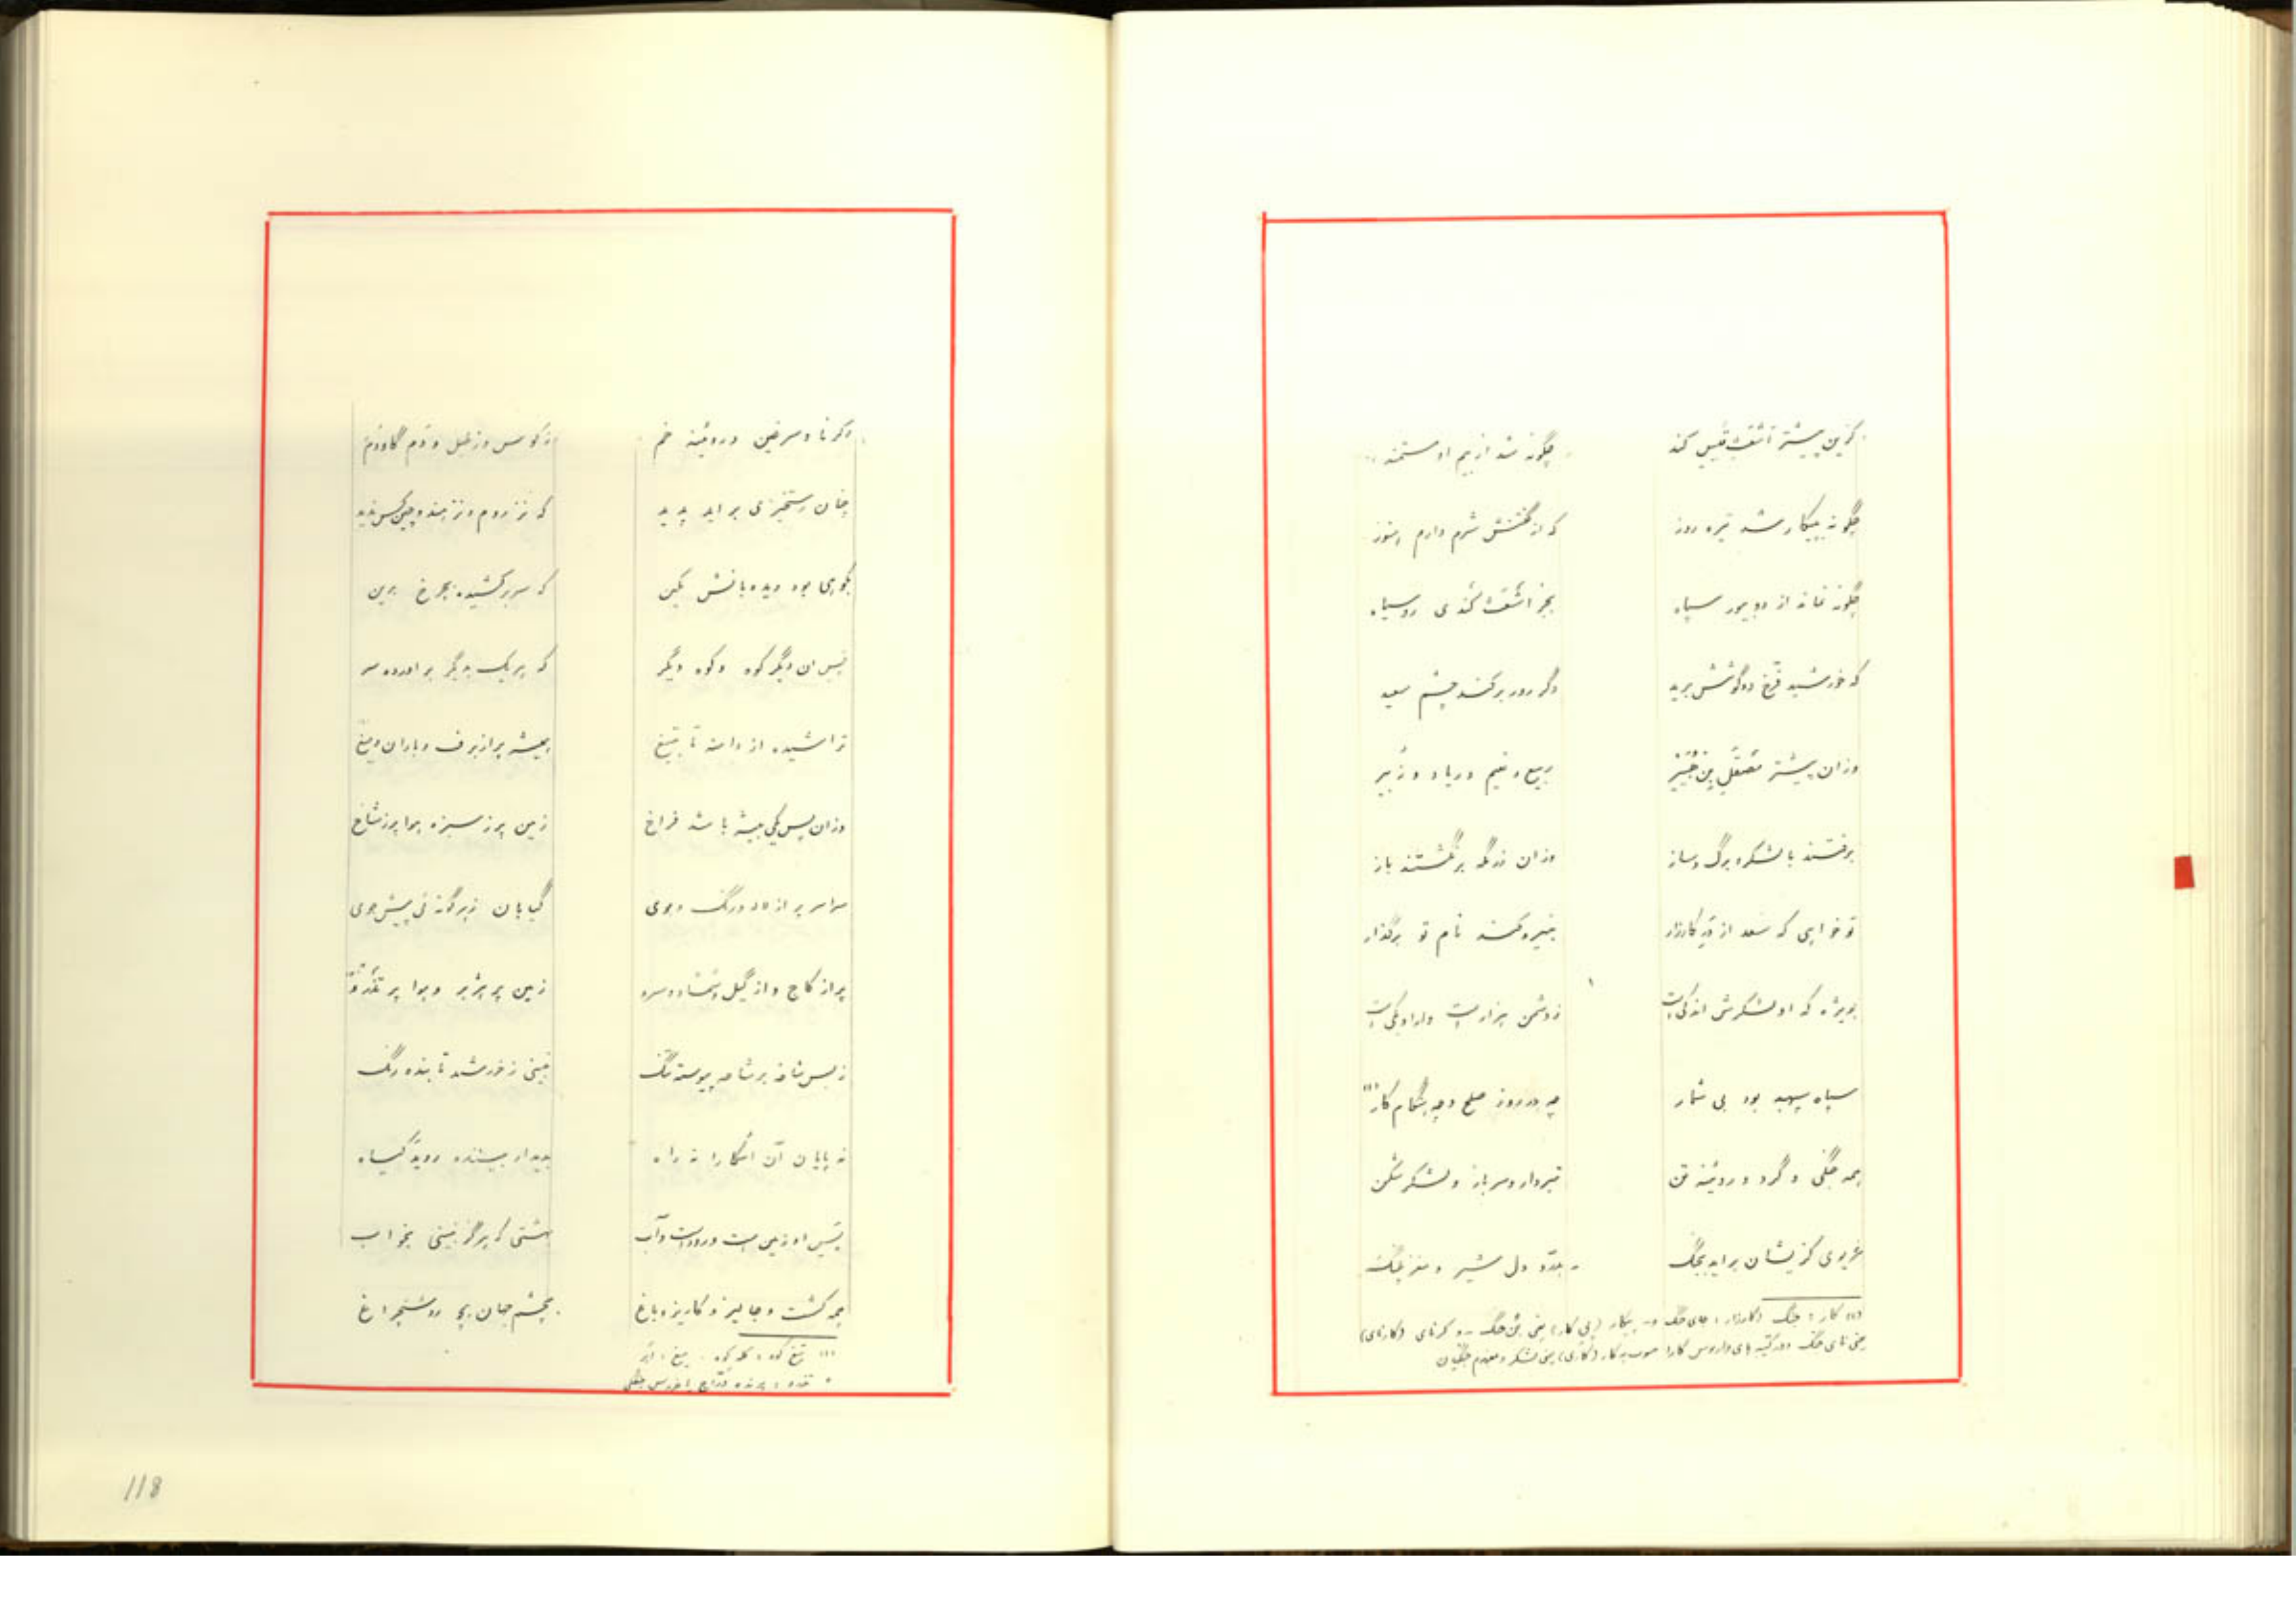 کزین پیشتر اشعث قیس کند چگونه شد از بیم او مستمند
چگونه به پیکار شد تیره روز که از گفتنش شرم دارم هنوز
چگونه نماند از دو بیور سپاه بجز اشعث کندی روسیاه
که خورشید فرخ دو گوشش برید دگر روز برکند چشم سعید
وزان پیشتر مصقلی بن
ربیع و نعیم و زیاد و زبیر
برفتند با لشکر و برگ و ساز وزان رزمگه برنگشتند باز
تو خواهی که سعد از کارزار بخیره کند نام تو برگذار
بویژه که او لشکرش اندکی است ز دشمن هزار است و او را یکی است
سپاه سپهبد بود بی شمار چه در روز صلح و چه هنگام کار (۱)
همه جنگی و گرد و روئینه تن تبردار و سرباز و لشکر شکن
غریوی کزیشان برآید بجنگ بدرد دل شیر و مغز پلنگ
(۱) کار : جنگ (کارزار : جای جنگ و - پیکار (پی کار) یعنی جنگ - و کرنای (کارنای)
یعنی نای جنگ و در کتیبه های داریوش کارا لشکر و مردم جنگیان
ز کرنا و سرغین و روئینه خم ز کوس و ز طبل و دم گاودم
چنان رستخیزی برآید پدید که نز روم و نز هند و چین کس ندید
بکوهی بود دیده بانش بکین که سر برکشیده بچرخ برین
پس آن دگر کوه و کوه دگر که هر یک بدیگر برآورده سر
تراشیده از دامنه تا بتیغ همیشه پر از برف و باران و میغ (۱)
وزان پس یکی بیشه باشد فراخ زمین پر ز سبزه هوا پر ز شاخ
سراسر پر از لاله و رنگ و بوی گیاهان ز هر گونه ئی پیش جوی
پر از کاج و از گیل و شمشاد و سرو زمین پر هژبر و هوا پر تذرو
ز بس شاخه بر شاخه پیوسته تنگ نبینی ز خورشید تابنده رنگ
نه پایان آن آشکارا نه راه بدیدار بیننده روید گیاه
پس او زمین است و رود است و آب بهشتی که هرگز نبینی بخواب
همه کشت و جالیز و کاریز و باغ بچشم جهان همچو روشن چراغ
(۱) تیغ کوه : قله کوه . میغ : ابر
تذرو : پرنده خروس جنگلی
118